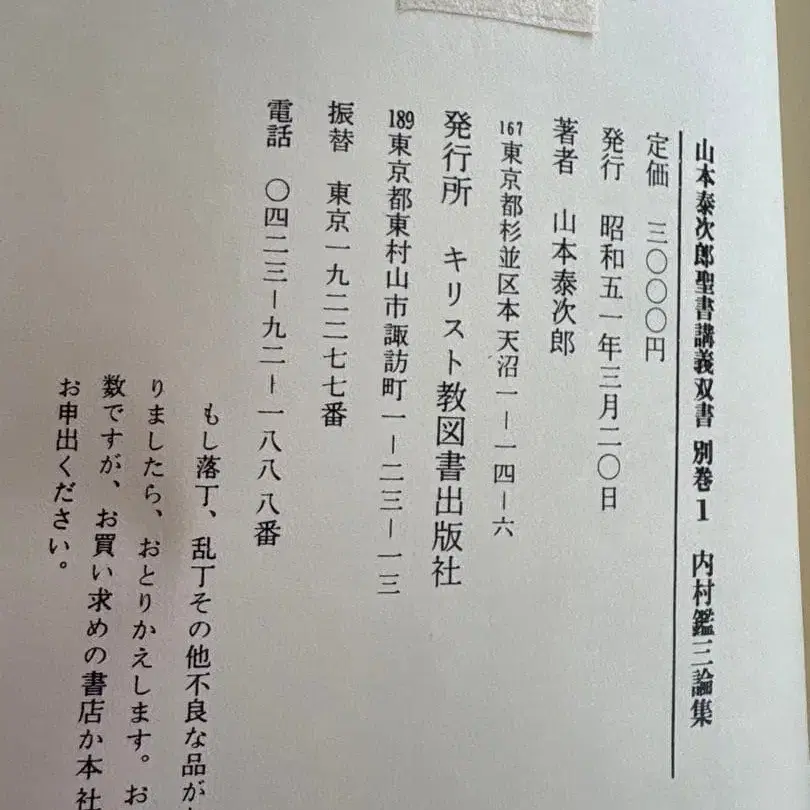 山本泰次郎聖書講義双書 別巻1 内村鑑三論集
定価 三〇〇〇円
発行 昭和五一年三月二〇日
著者 山本泰次郎
167東京都杉並区本天沼一ー一四ー六
発行所 キリスト教図書出版社
189東京都東村山市諏訪町一ー二三ー一三
振替 東京一九二二七七番
電話 〇四二三ー九二ー一八八八番
もし落丁、乱丁その他不良な品が
りましたら、おとりかえします。お
数ですが、お買い求めの書店か本社
お申出ください。